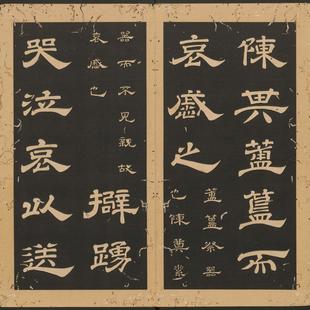 陳其簠簋而
哀慼之
簠簋祭器
也陳奠素
器而不見親故
哀慼也
擗踴
哭泣哀以送